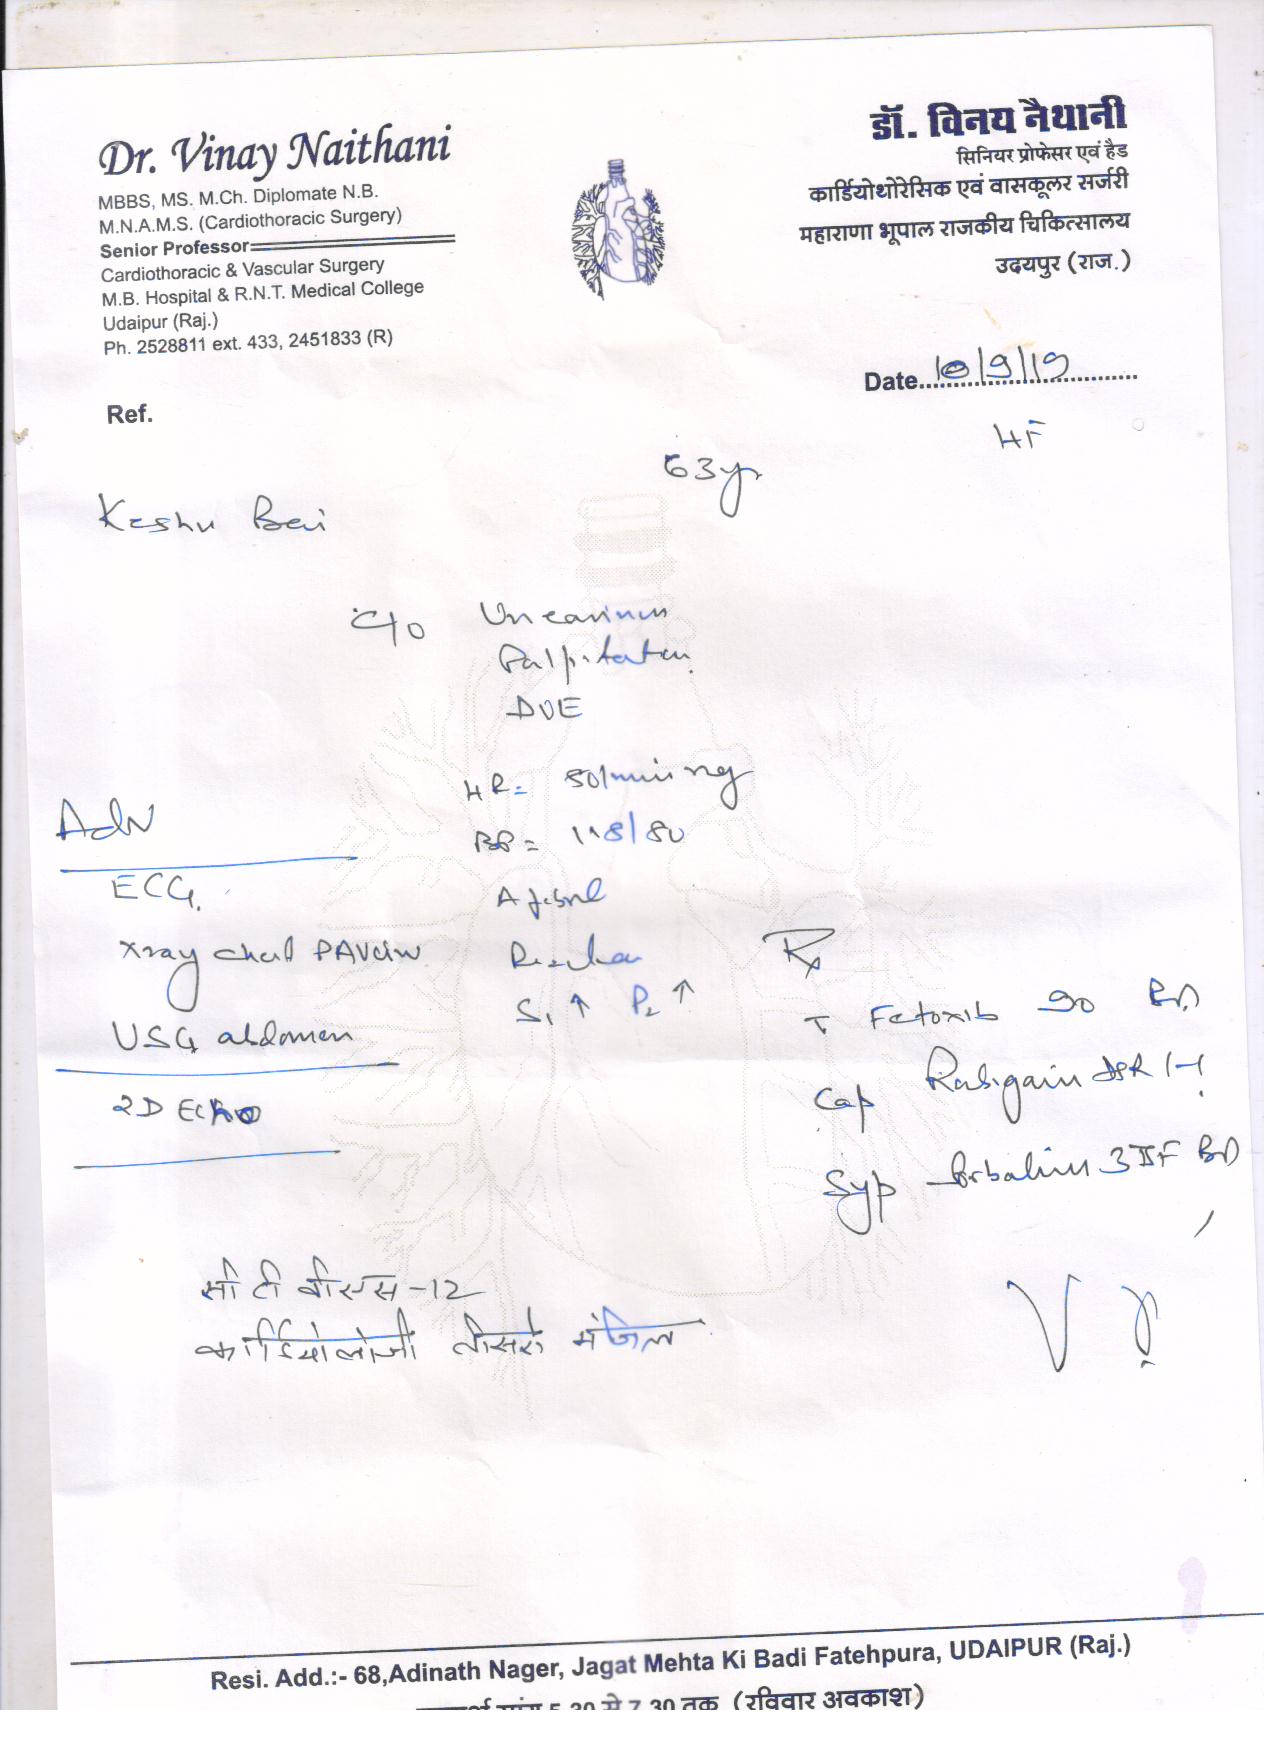 Dr. Vinay Naithani
MBBS, MS. M.Ch. Diplomate N.B.
M.N.A.M.S. (Cardiothoracic Surgery)
Senior Professor
Cardiothoracic & Vascular Surgery
M.B. Hospital & R.N.T. Medical College
Udaipur (Raj.)
Ph. 2528811 ext. 433, 2451833 (R)
डॉ. विनय नैथानी
सिनियर प्रोफेसर एवं हैड
कार्डियोथोरेसिक एवं वासकूलर सर्जरी
महाराणा भूपाल राजकीय चिकित्सालय
उदयपुर (राज.)
Date 10/9/19
Ref.
HF
63yr
Keshu Bai
C/O
Palpitation
DOE
HR= 80/min
BP= 118/80
Afebrile
S₁ ↑ P₂ ↑
Adv
ECG.
Xray chest PA View
USG abdomen
2D Echo
Rx
T 90 BD
Cap Rabigain DSR 1-1
Syp BD
सी टी वीएस -12
कार्डियोलोजी तीसरी मंजिल
Resi. Add.:- 68,Adinath Nager, Jagat Mehta Ki Badi Fatehpura, UDAIPUR (Raj.)
5.30 से 7.30 तक (रविवार अवकाश)